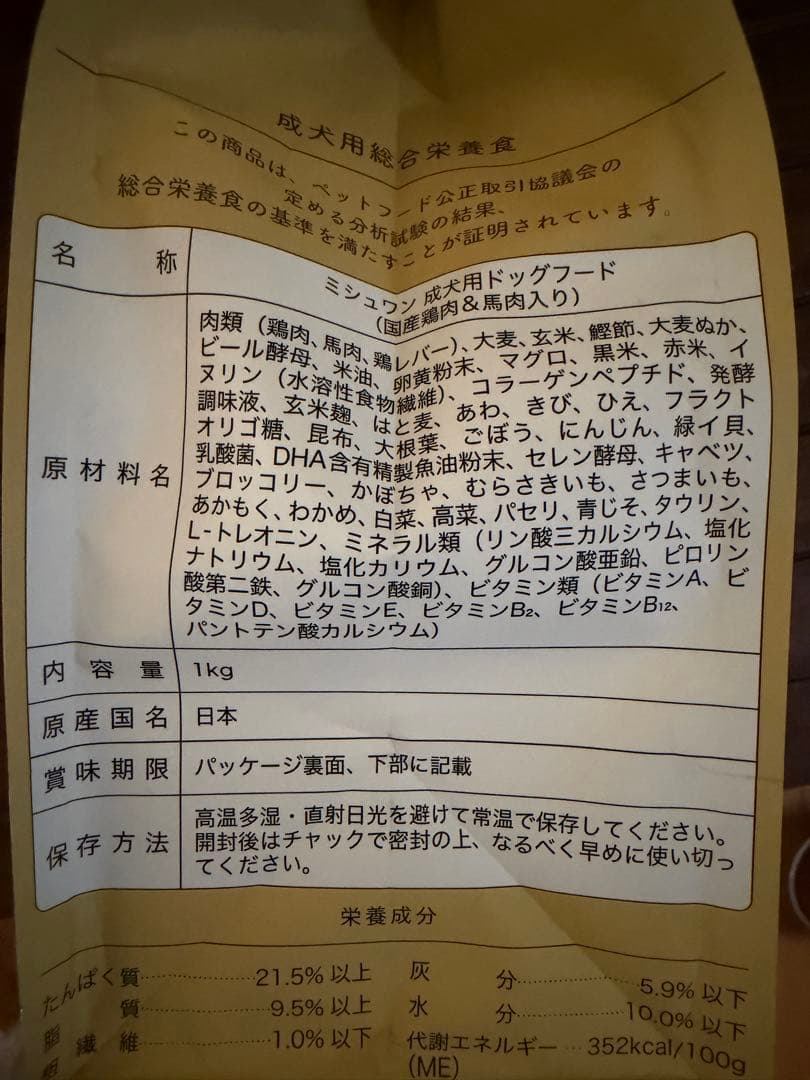 成犬用総合栄養食
この商品は、ペットフード公正取引協議会の
定める分析試験の結果、
総合栄養食の基準を満たすことが証明されています。
名称
ミシュワン 成犬用ドッグフード
(国産鶏肉&馬肉入り)
原材料名
肉類(鶏肉、馬肉、鶏レバー)、大麦、玄米、鰹節、大麦ぬか、
ビール酵母、米油、卵黄粉末、マグロ、黒米、赤米、イ
ヌリン(水溶性食物繊維)、コラーゲンペプチド、発酵
調味液、玄米麹、はと麦、あわ、きび、ひえ、フラクト
オリゴ糖、昆布、大根葉、ごぼう、にんじん、緑イ貝、
乳酸菌、DHA含有精製魚油粉末、セレン酵母、キャベツ、
ブロッコリー、かぼちゃ、むらさきいも、さつまいも、
あかもく、わかめ、白菜、高菜、パセリ、青じそ、タウリン、
L-トレオニン、ミネラル類(リン酸三カルシウム、塩化
ナトリウム、塩化カリウム、グルコン酸亜鉛、ピロリン
酸第二鉄、グルコン酸銅)、ビタミン類(ビタミンA、ビ
タミンD、ビタミンE、ビタミンB₂、ビタミンB₁₂、
パントテン酸カルシウム)
内容量
1kg
原産国名
日本
賞味期限
パッケージ裏面、下部に記載
保存方法
高温多湿・直射日光を避けて常温で保存してください。
開封後はチャックで密封の上、なるべく早めに使い切っ
てください。
栄養成分
たんぱく質…………21.5%以上
脂質…………9.5%以上
粗繊維…………1.0%以下
灰分…………5.9%以下
水分…………10.0%以下
代謝エネルギー…352kcal/100g
(ME)